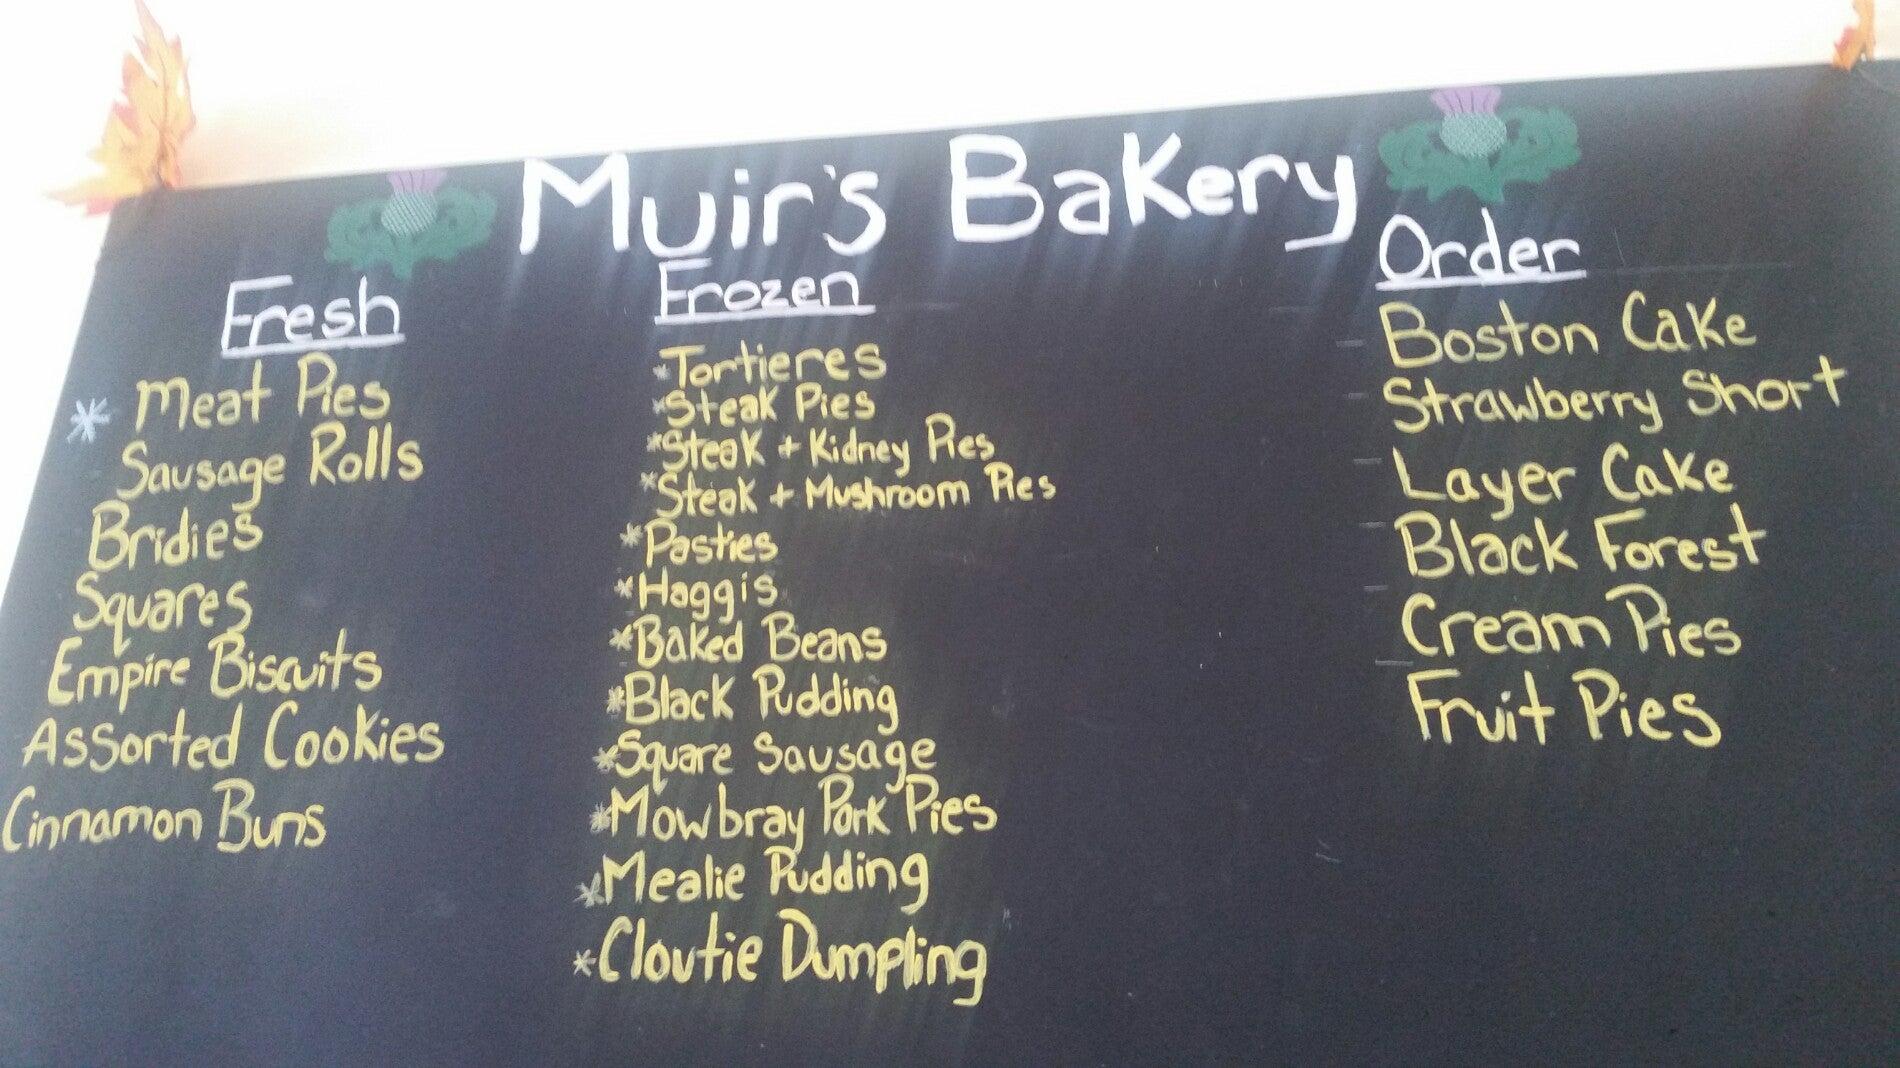 Muir's Bakery
Fresh
* Meat Pies
Sausage Rolls
Bridies
Squares
Empire Biscuits
Assorted Cookies
Cinnamon Buns
Frozen
* Tortieres
* Steak Pies
* Steak + Kidney Pies
* Steak + Mushroom Pies
* Pasties
* Haggis
* Baked Beans
* Black Pudding
* Square Sausage
* Mowbray Pork Pies
* Mealie Pudding
* Cloutie Dumpling
Order
- Boston Cake
- Strawberry Short
- Layer Cake
- Black Forest
- Cream Pies
- Fruit Pies